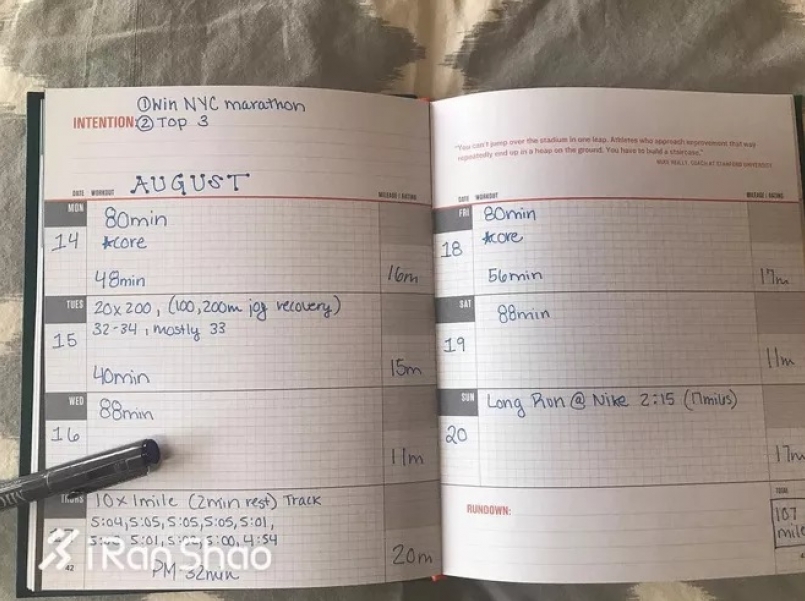 ①Win NYC marathon
INTENTION:②Top 3
AUGUST
DATE WORKOUT MILEAGE | RATING
MON
14
80min
*core
48min
16m
TUES
15
20x200, (100,200m jog recovery)
32-34, mostly 33
40min
15m
WED
16
88min
11m
THURS
10x1mile (2min rest) Track
5:04,5:05,5:05,5:05,5:01,
5:01, 5:00, 4:54
PM 32min
20m
42
iRanShao
"You can't jump over the stadium in one leap. Athletes who approach improvement that way
repeatedly end up in a heap on the ground. You have to build a staircase."
COACH AT STANFORD UNIVERSITY
DATE WORKOUT MILEAGE | RATING
FRI
18
80min
*core
56min
17m
SAT
19
88min
11m
SUN
20
Long Run @ Nike 2:15 (17miles)
17m
RUNDOWN:
TOTAL
107
mile